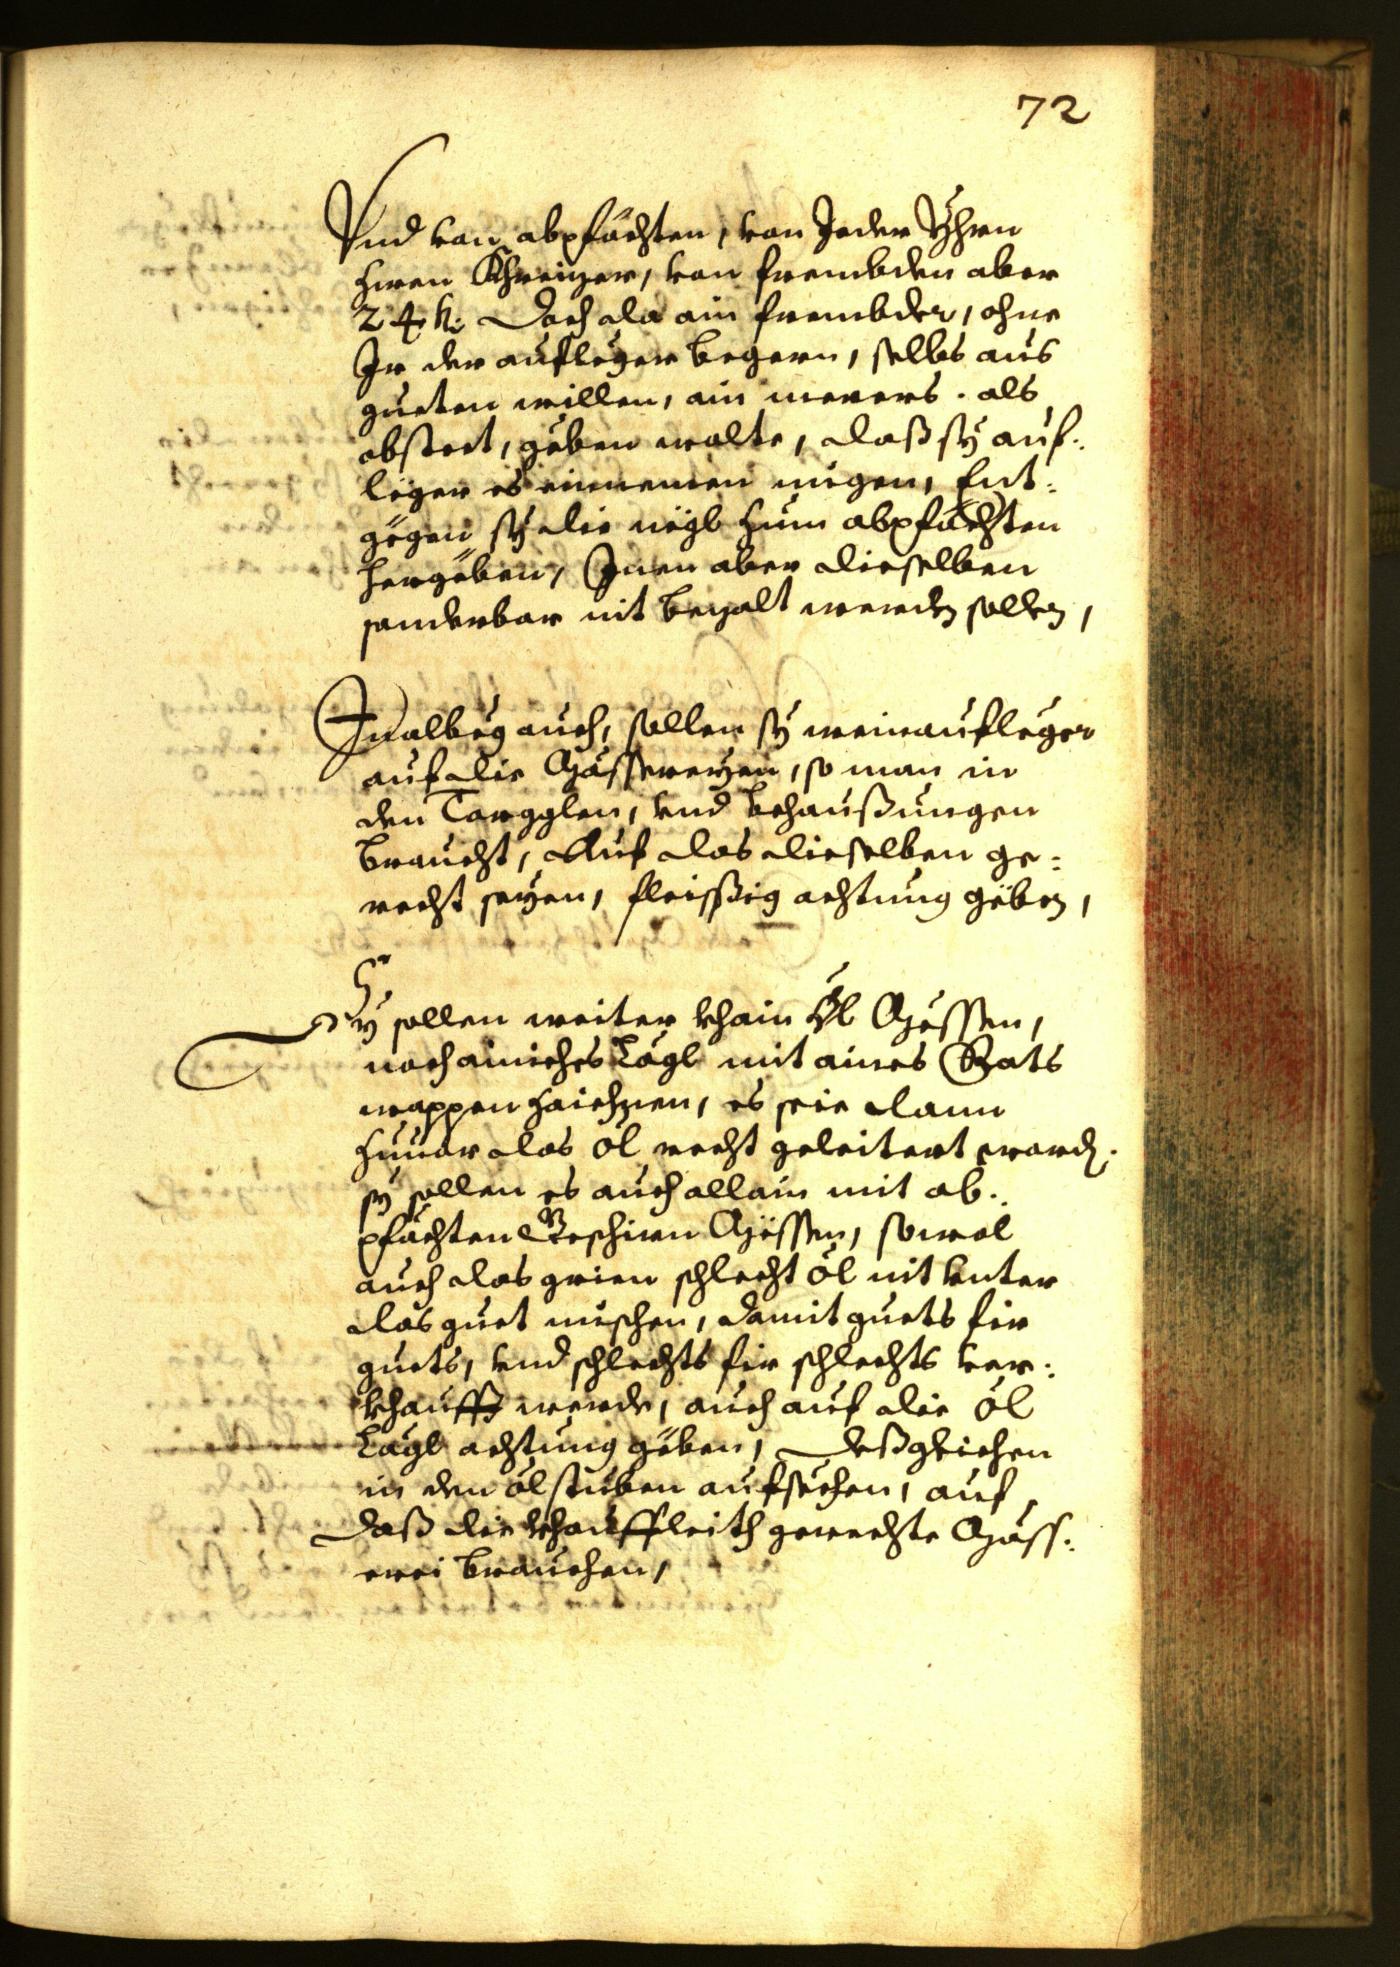 72
Vnd von abpfächten, von Jeder Yhrn
zwen Khreizer, von frembden aber
24 k: Doch da ain frembder, ohne
Jr der aufleger begern, selbs aus
gueten willen, ain merers. als
obsteet, geben wolte, daß sy auf:
leger es einnemen migen, Ent:
gegen sy die negl zum abpfächten
hergeben, Jnen aber dieselben
sonderbar nit bezalt werden sollen,
Jnalbeg auch, sollen sy weinaufleger
auf die Gässereyen, so man in
den Torgglen, vnd behaußungen
braucht, Auf das dieselben ge:
recht seyen, fleissig achtung geben,
Sy sollen weiter khain Öl Gessen,
noch ainiches Lagl mit aines Rats
wappen zaichnen, es seie dann
zuuor das öl recht geleitert word:
sy sollen es auch allain mit ab:
pfächten Geschirn Gessen, sowol
auch das grien schlecht öl nit vnter
das guet mischen, damit guets fir
guets, vnd schlechts fir schlechts ver:
khaufft werde, auch auf die öl
Lagl achtung geben, Deßgleichen
in den ölstuben aufsechen, auf
daß die khauffleith gerechte Gäss:
erei brauchen,